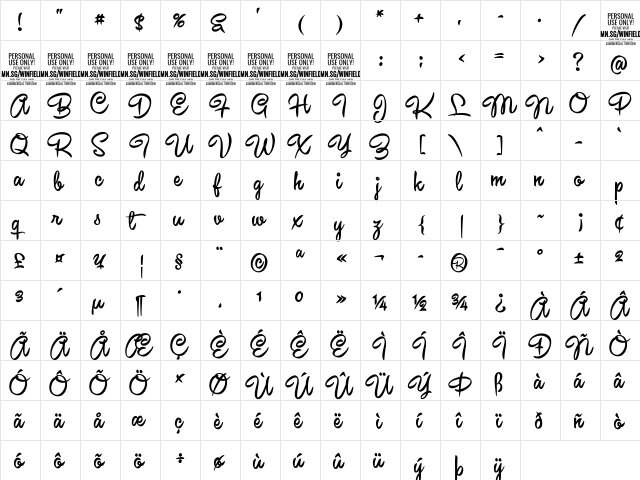 ! " # $ % & ' ( ) * + , - . / PERSONAL USE ONLY! PLEASE VISIT MN.SG/WINFIELD
PERSONAL USE ONLY! PLEASE VISIT MN.SG/WINFIELD PERSONAL USE ONLY! PLEASE VISIT MN.SG/WINFIELD PERSONAL USE ONLY! PLEASE VISIT MN.SG/WINFIELD PERSONAL USE ONLY! PLEASE VISIT MN.SG/WINFIELD PERSONAL USE ONLY! PLEASE VISIT MN.SG/WINFIELD PERSONAL USE ONLY! PLEASE VISIT MN.SG/WINFIELD PERSONAL USE ONLY! PLEASE VISIT MN.SG/WINFIELD PERSONAL USE ONLY! PLEASE VISIT MN.SG/WINFIELD PERSONAL USE ONLY! PLEASE VISIT MN.SG/WINFIELD : ; < = > ? @
A B C D E F G H I J K L M N O P
Q R S T U V W X Y Z [ \ ] ^ - `
a b c d e f g h i j k l m n o p
q r s t u v w x y z { | } ~ ¡ ¢
£ ¤ ¥ ¦ § ¨ © ª « ¬ - ® ¯ ° ± ²
³ ´ µ ¶ · ¸ ¹ º » ¼ ½ ¾ ¿ À Á Â
Ã Ä Å Æ Ç È É Ê Ë Ì Í Î Ï Ð Ñ Ò
Ó Ô Õ Ö × Ø Ù Ú Û Ü Ý Þ ß à á â
ã ä å æ ç è é ê ë ì í î ï ð ñ ò
ó ô õ ö ÷ ø ù ú û ü ý þ ÿ